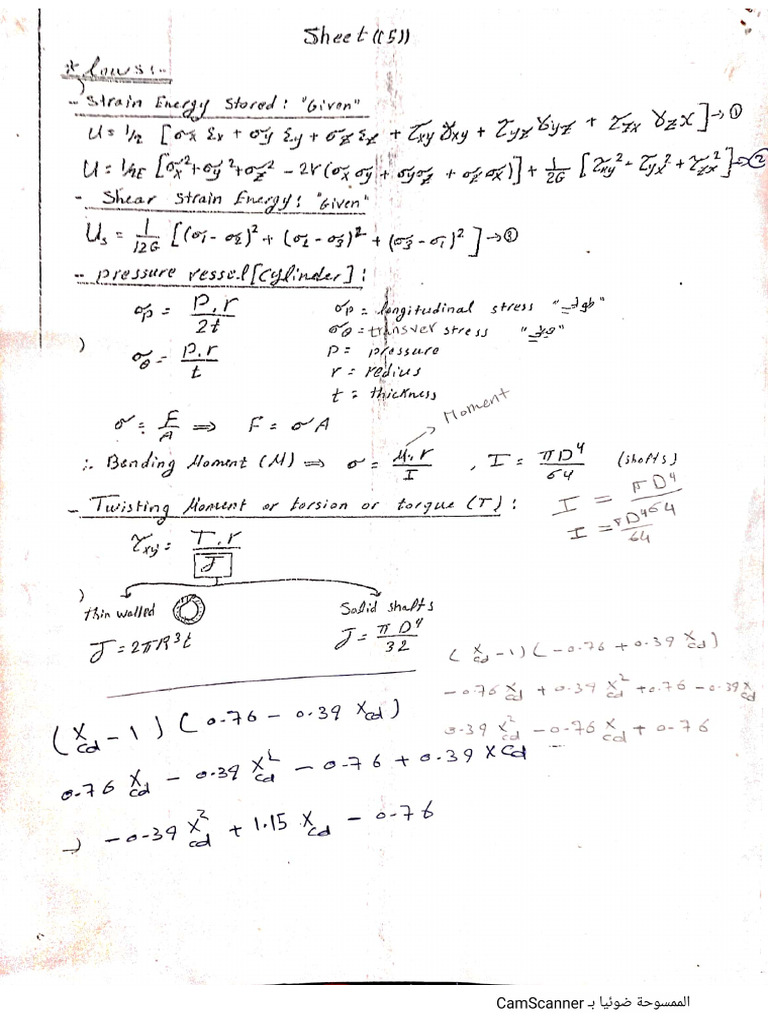 Sheet ((5))
* Lows:-
- Strain Energy Stored: "Given"
U = 1/2 [σx Ɛx + σy Ɛy + σz Ɛz + τxy γxy + τyz γyz + τzx γzx] → ①
U = 1/2E [σx² + σy² + σz² - 2r(σx σy + σyσz + σz σx)] + 1/2G [τxy² - τyx² + τzx²] → ②
- Shear Strain Energy: "Given"
Us = 1/12G [(σ1 - σ2)² + (σ2 - σ3)² + (σ3 - σ1)²] → ③
- Pressure vessel [Cylinder]:
σp = P.r / 2t
σp = longitudinal stress
σθ = transver stress
σθ = P.r / t
P = pressure
r = redius
t = thickness
σ = F/A ⇒ F = σ A
Moment
∴ Bending Moment (M) ⇒ σ = M.r / I , I = πD⁴ / 64 (shafts)
I = πD⁴ / 64
I = πD⁴ / 64
- Twisting Moment or torsion or torque (T):
τxy = T.r / J
Thin walled
Solid shafts
J = 2πR³t
J = π D⁴ / 32
(Xcd - 1) (-0.76 + 0.39 Xcd)
-0.76 Xcd + 0.39 X²cd + 0.76 - 0.39 Xcd
0.39 X²cd - 0.76 Xcd + 0.76
(Xcd - 1) (0.76 - 0.39 Xcd)
0.76 Xcd - 0.39 X²cd - 0.76 + 0.39 Xcd
→ -0.39 X²cd + 1.15 Xcd - 0.76
الممسوحة ضوئيا بـ CamScanner